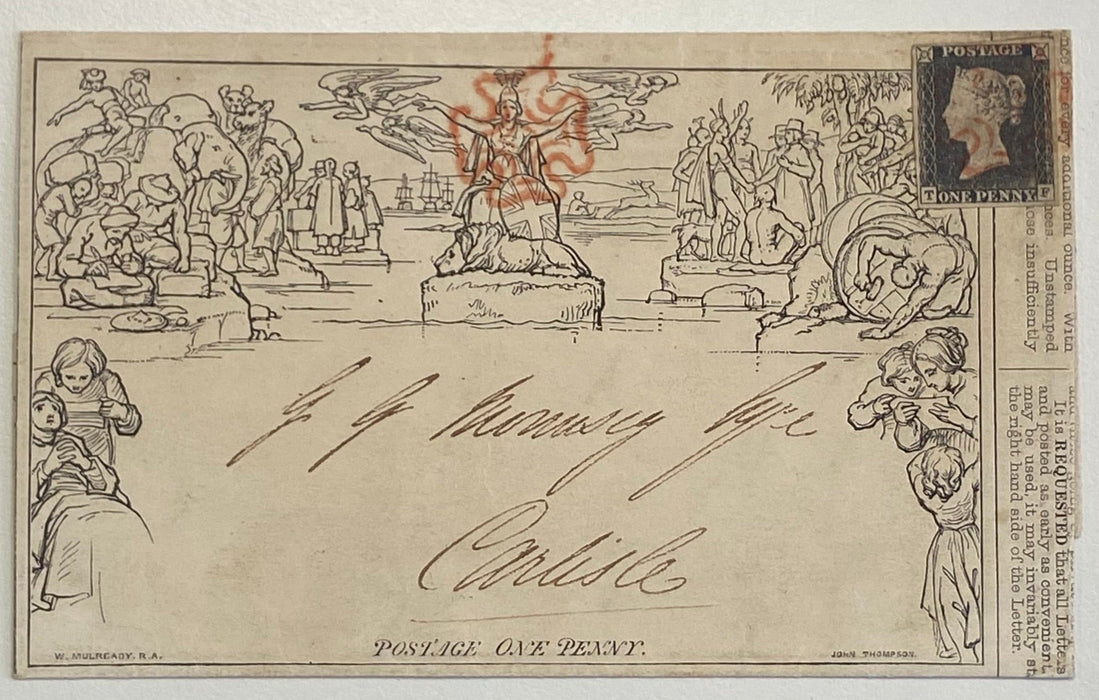 POSTAGE
T ONE PENNY F
G G Mounsey Esqre
Carlisle
POSTAGE ONE PENNY.
W. MULREADY. R.A.
JOHN THOMPSON.
additional ounce. With
Unstamped
insufficiently
It is REQUESTED that all Letters
and posted as early as convenient
may be used, it may invariably
the right hand side of the Letter.